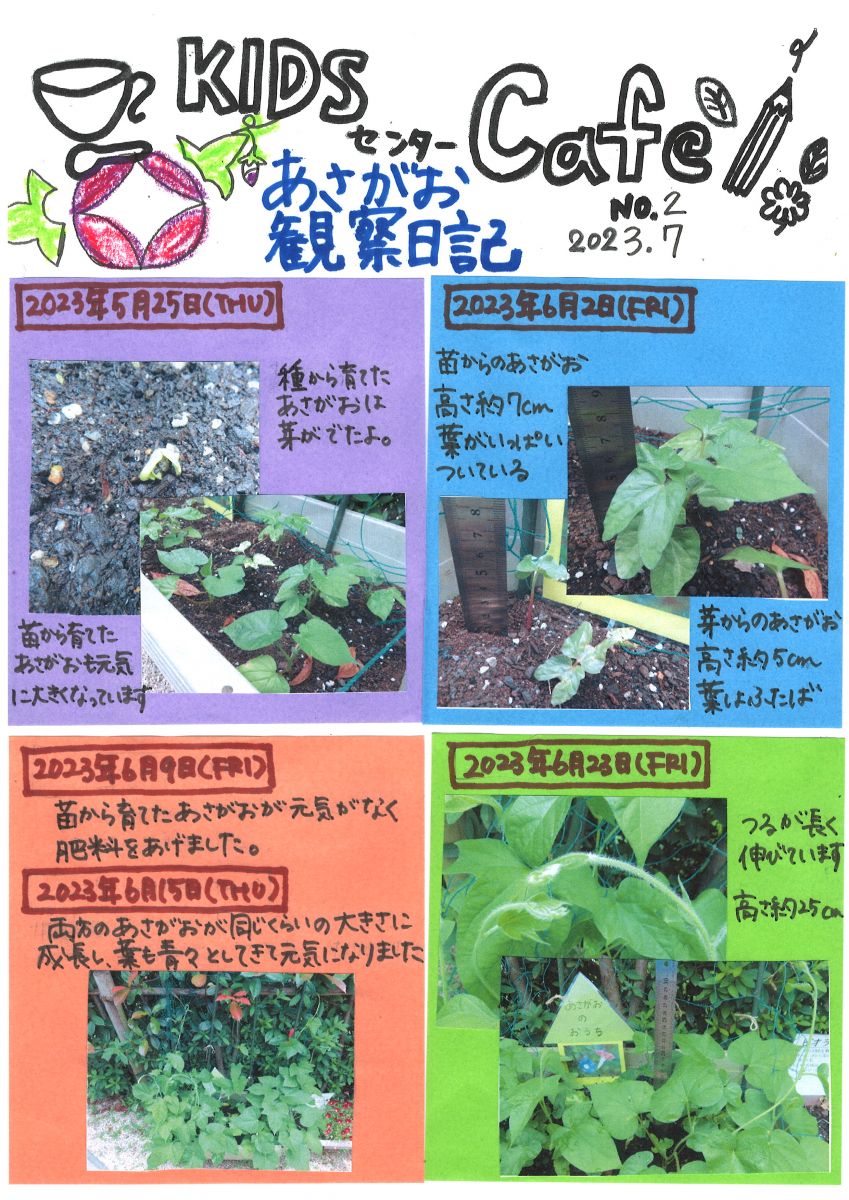 KIDS
センター
Cafe
あさがお
観察日記
NO.2
2023.7
2023年5月25日(THU)
種から育てた
あさがおは
芽がでたよ。
苗から育てた
あさがおも元気
に大きくなっています
2023年6月2日(FRI)
苗からのあさがお
高さ約7cm
葉がいっぱい
ついている
芽からのあさがお
高さ約5cm
葉はふたば
2023年6月9日(FRI)
苗から育てたあさがおが元気がなく
肥料をあげました。
2023年6月15日(THU)
両方のあさがおが同じくらいの大きさに
成長し、葉も青々としてきて元気になりました
2023年6月23日(FRI)
つるが長く
伸びています
高さ約25cm
あさがお
の
おうち